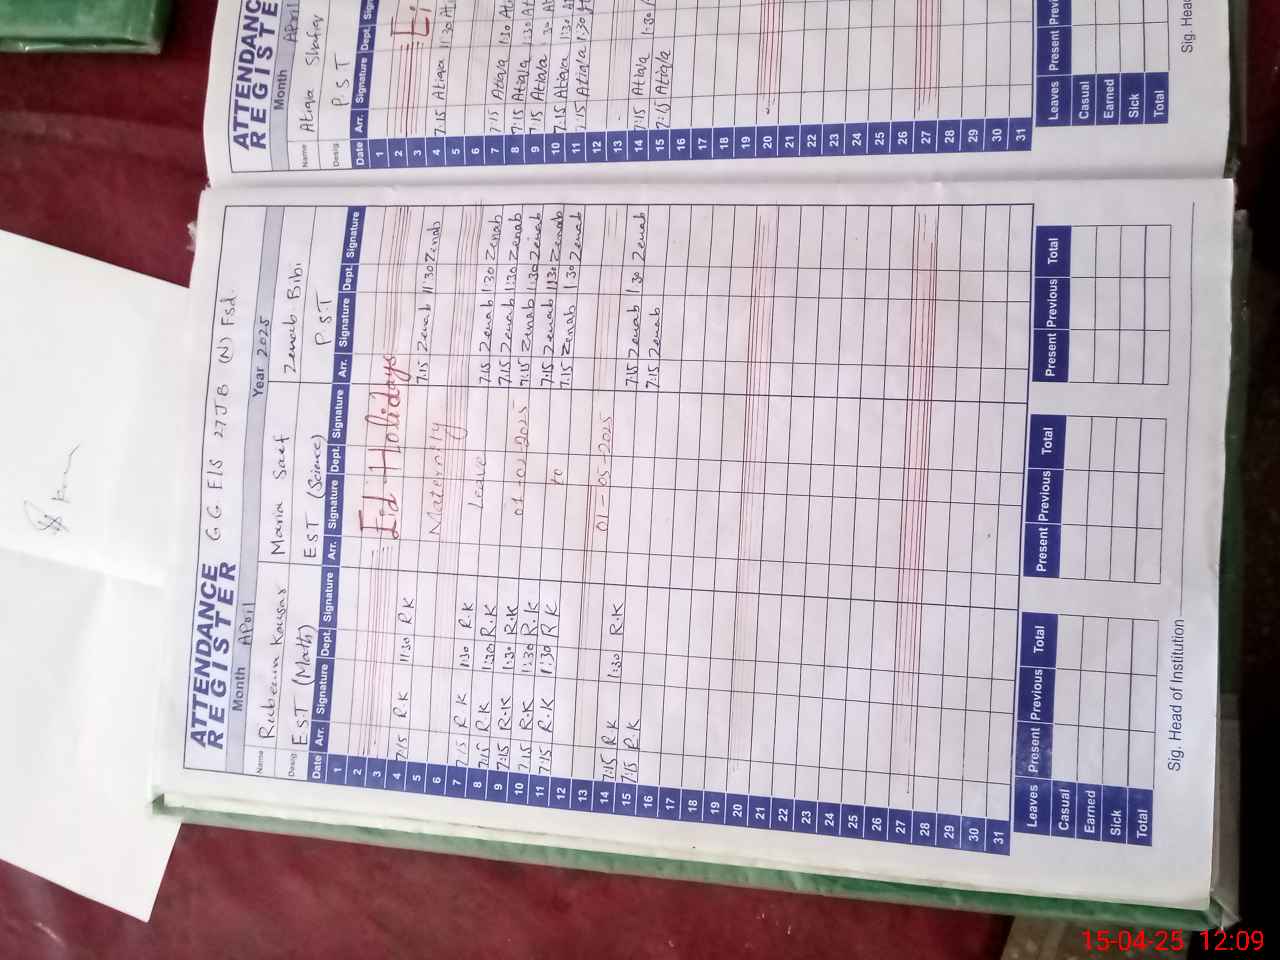 ATTENDANCE REGISTER G G E/S 27 J B (N) Fsd.
Month April Year 2025
Name Rubeena Kausar Maria Saef Zenab Bibi
Desig. E.S.T (Math) E S T (Science) P.S.T
Date Arr. Signature Dept. Signature Arr. Signature Dept. Signature Arr. Signature Dept. Signature
1
2
3 Eid Holidays
4 7:15 R.K 11:30 R.K 7:15 Zenab 11:30 Zenab
5
6 Maternity
7 7:15 R.K 1:30 R.K 7:15 Zenab 1:30 Zenab
8 7:15 R.K 1:30 R.K Leave 7:15 Zenab 1:30 Zenab
9 7:15 R.K 1:30 R.K 7:15 Zenab 1:30 Zenab
10 7:15 R.K 1:30 R.K 7:15 Zenab 11:30 Zenab
11 7:15 R.K 1:30 R.K to 7:15 Zenab 1:30 Zenab
12
13
14 7:15 R.K 1:30 R.K 01-05-2025 7:15 Zenab 1:30 Zenab
15 7:15 R.K 7:15 Zenab
16
17
18
19
20
21
22
23
24
25
26
27
28
29
30
31
Leaves Present Previous Total Present Previous Total Present Previous Total
Casual
Earned
Sick
Total
Sig. Head of Institution
ATTENDANCE REGISTER
Month April
Name Atiqa Shafar
Desig. P.S T
Date Arr. Signature Dept. Sign
1
2
3
4 7:15 Atiqa 11:30
5
6
7 7:15 Atiqa 1:30
8 7:15 Atiqa 1:30
9 7:15 Atiqa 1:30
10 7:15 Atiqa 1:30
11 7:15 Atiqa 1:30
12
13
14 7:15 Atiqa 1:30
15 7:15 Atiqa
16
17
18
19
20
21
22
23
24
25
26
27
28
29
30
31
Leaves Present Previ
Casual
Earned
Sick
Total
Sig. Head
15-04-25 12:09